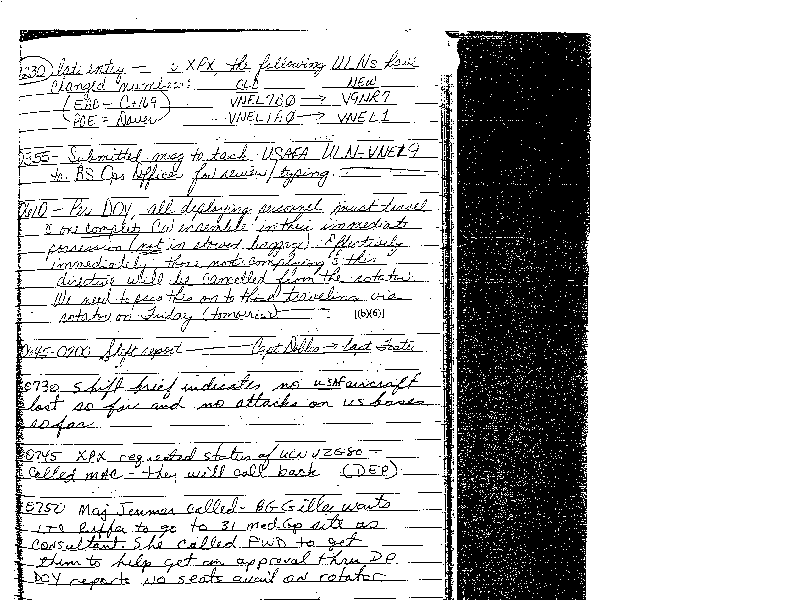 0230 late entry — c̄ XPX, the following ULNs have
changed numbers: OLD NEW
(EAD - C+169) VNEL7E0 → V9NR7
(POE = Dover) VNEL1A0 → VNEL1
0355 - Submitted msg to task USAFA ULN-VNEL9
to BS Ops Officer for review/typing.
0610 - Per DOY, all deploying personnel must travel
c̄ one complete CW ensemble in their immediate
possession (not in stowed baggage). Effectively
immediately, those not complying c̄ this
directive will be cancelled from the rotator.
We need to pass this on to those traveling via
rotator on Friday (tomorrow) [(b)(6)]
0645-0700 Shift report — Capt → Capt Foster
0730 Shift brief indicates no USAF aircraft
lost so far and no attacks on US bases
so far.
0745 XPX requested status of ULN VZG80 -
Called MAC - they will call back (DEP)
0750 Maj called - BG wants
to go to 31 med Gp site as
consultant. She called FWD to get
them to help get on approval thru DP.
DOY reports no seats avail on rotator